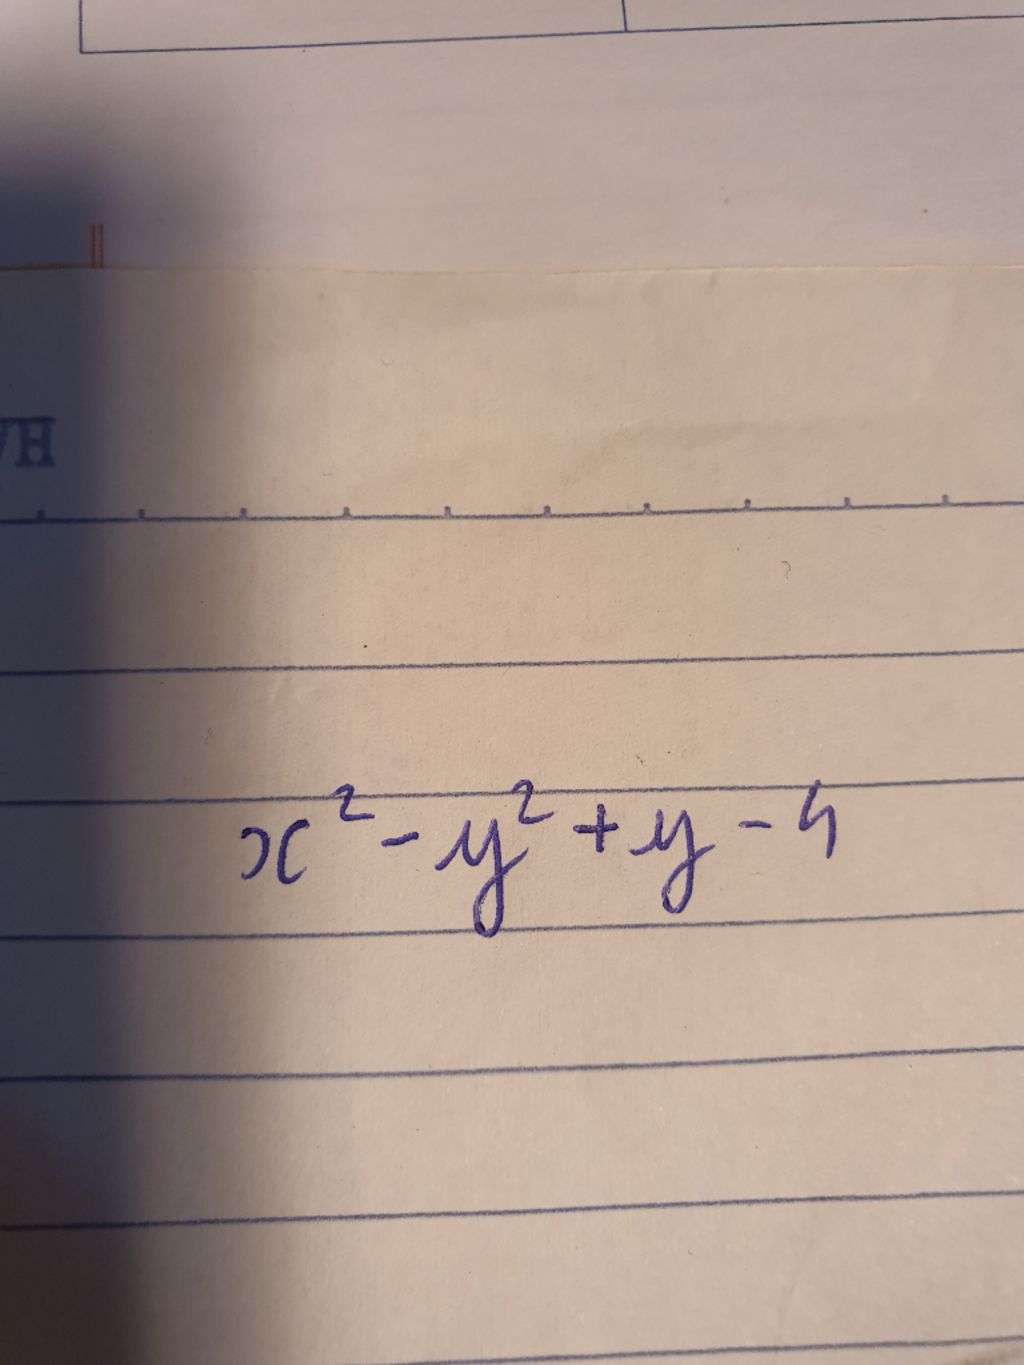 x² - y² + y - 4